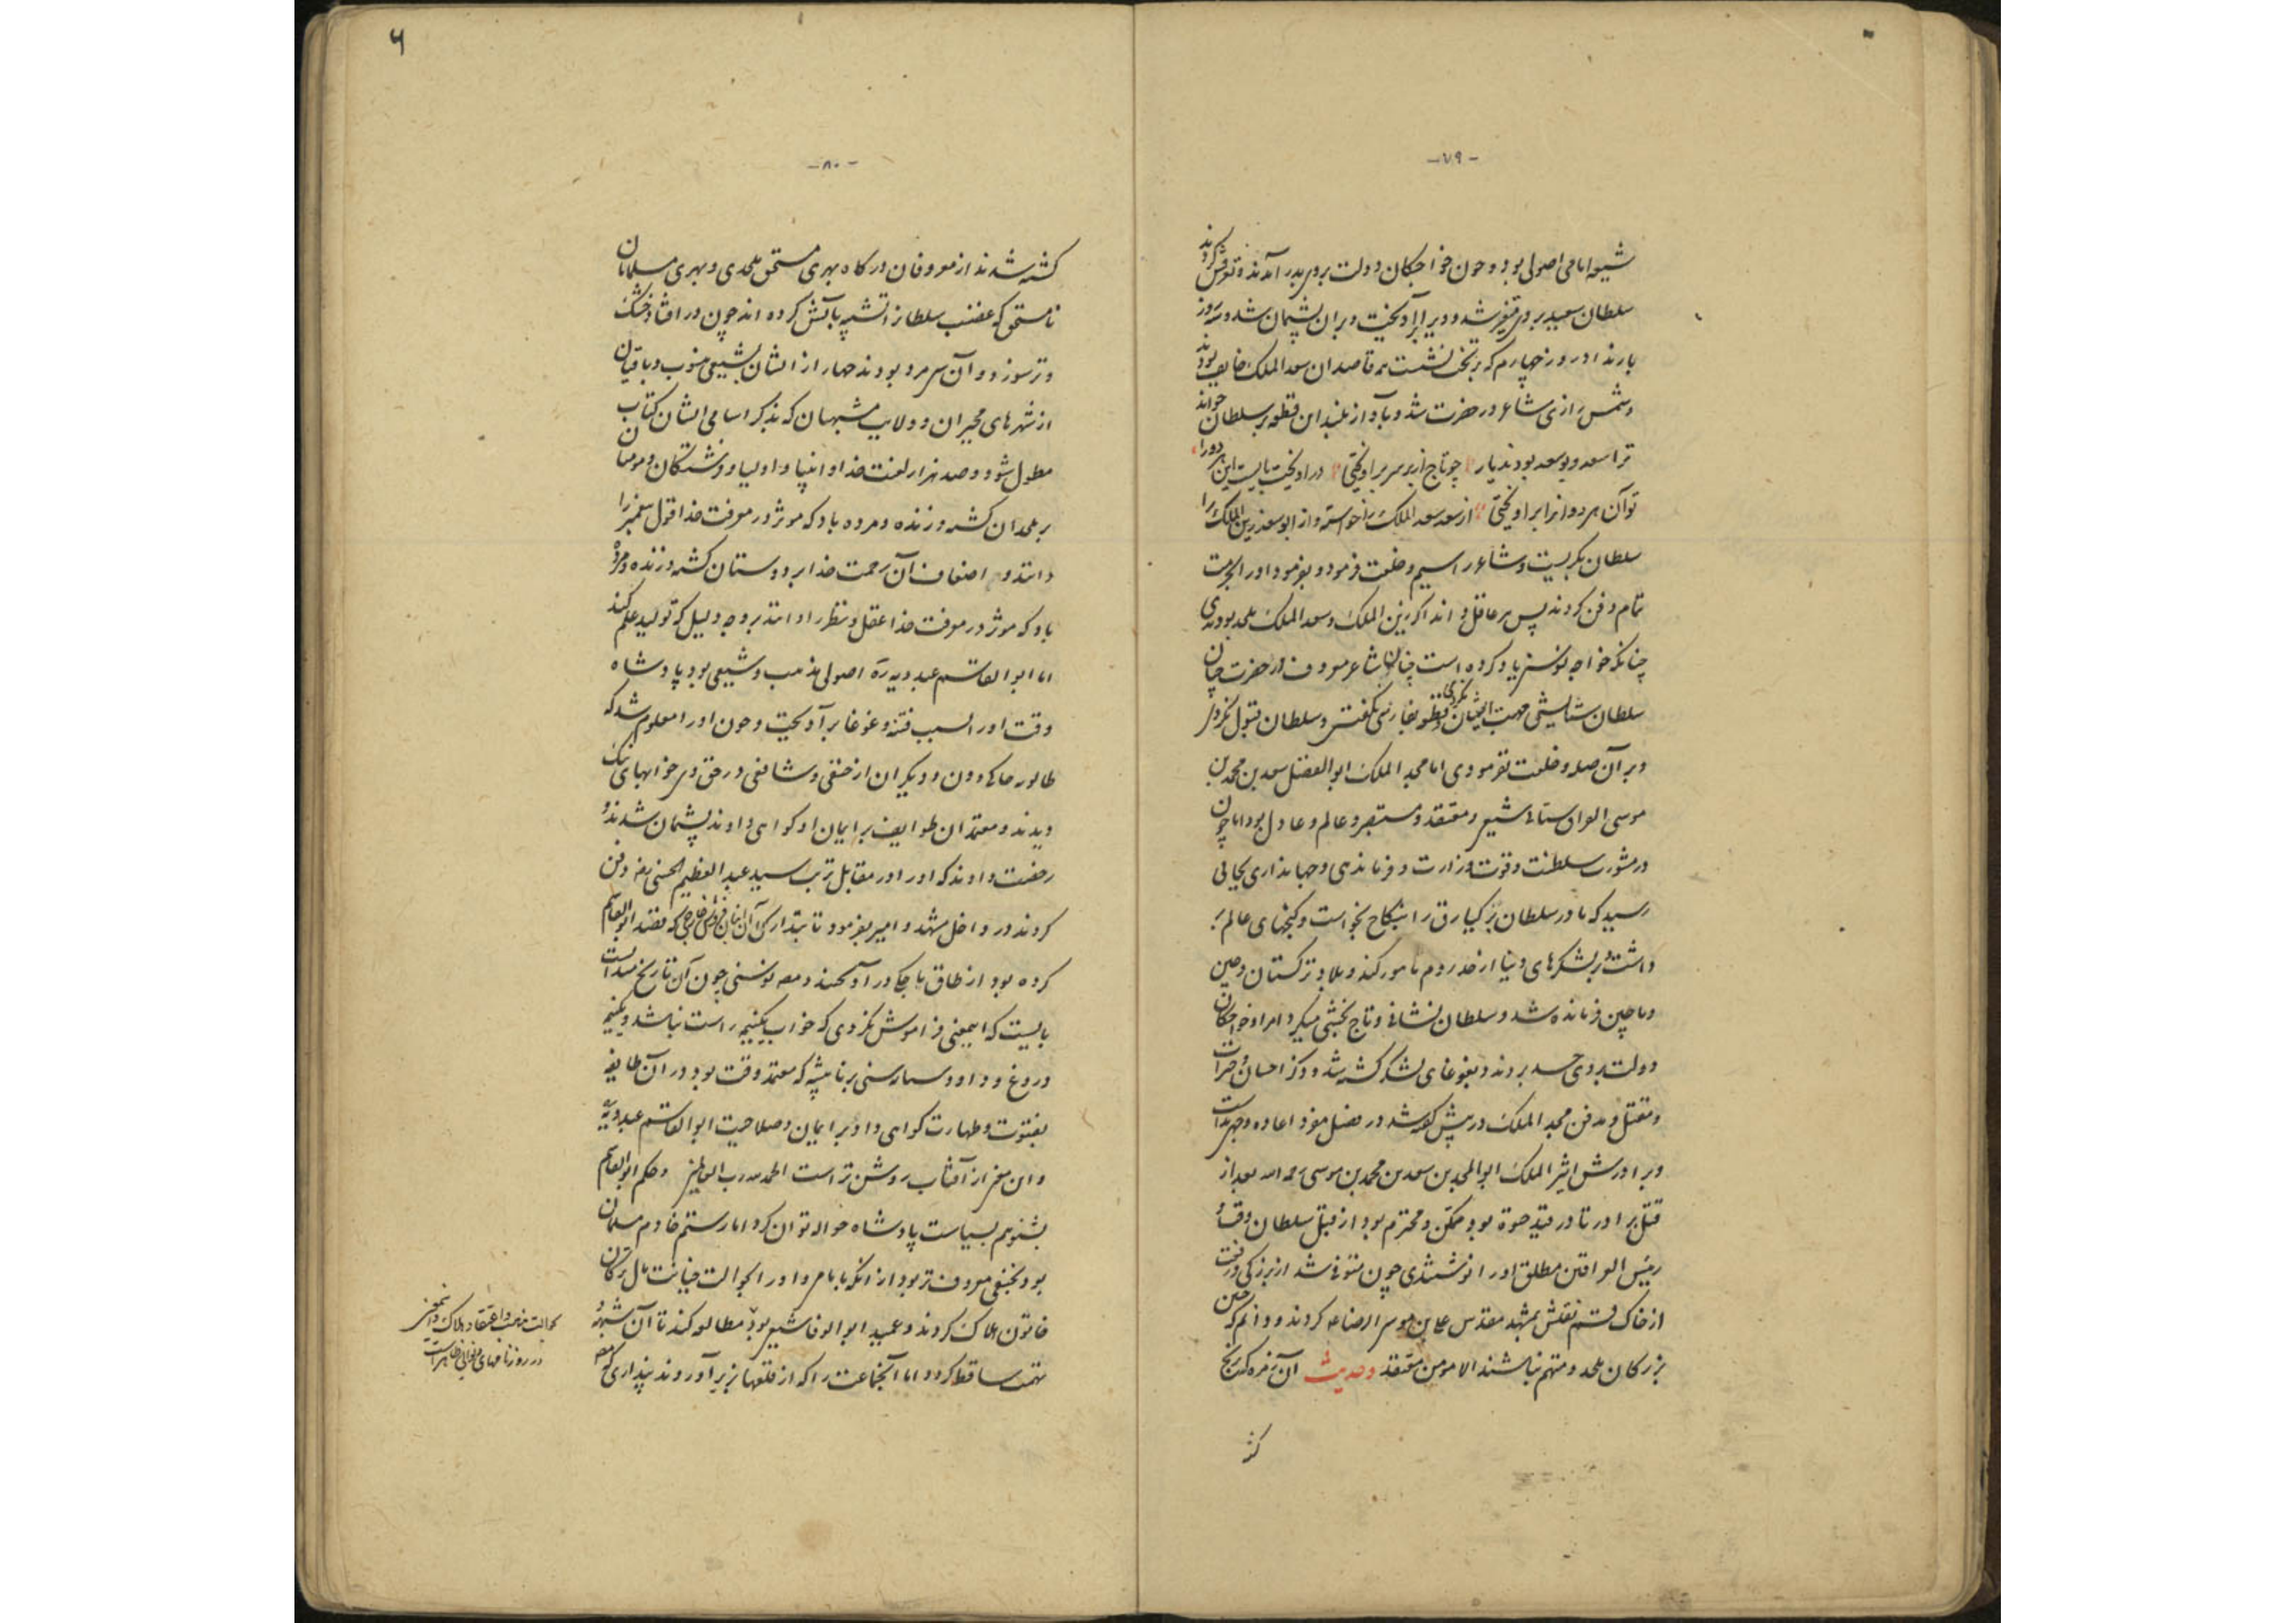 -۷۹-
شیعه امامی اصولی بود و چون خواجکان دولت بروی بدر آمدند و کردند
سلطان سعید بر وی متغیر شد و ویرا برآویخت و بران پشیمان شد و سه روز
بار نداد روز چهارم که بر تخت نشست همه قاصدان سعد الملک خایف بودند
و شمس رازی شاعر در حضرت شد و بآواز بلند این قطعه بر سلطان خواند
ترا سعد و بوسعد بودند یار چو تاج از بر سر برآویختی درآویخت بایست این هر دو را
تو آن هر دوانرا برآویختی از سعد سعد الملک را خواسته و از ابو سعد زین الملک را
سلطان بگریست و شاعر را سیم و خلعت فرمود و بفرمود او را بحرمت
تمام دفن کردند پس هر عاقل داند اگر زین الملک و سعد الملک ملحد بودندی
چنانکه خواجه نوسنی یاد کرده است چنان شاعر معروف در حضرت چنان
سلطان ستایشی جهت ایشان نکردی و قطعه بفارسی نگفتی و سلطان قبول نکردی
و بر آن صله و خلعت نفرمودی اما مجد الملک ابو الفضل سعد بن محمد بن
موسی الراوستانی شیعی و معتقد و مستبصر و عالم و عادل بود اما چون
در مشورت سلطنت و قوت وزارت و فرماندهی و جهانداری بجائی
رسید که مادر سلطان برکیارق را بنکاح بخواست و گنجهای عالم بر
داشت و بر لشکرهای دنیا از حد روم تا مورکند و بلاد ترکستان و چین
و ماچین فرمانده شد و سلطان نشانی و تاج بخشی میکرد امرا و خواجکان
دولت بر وی حسد بردند و بغوغای لشکر کشته شد و ذکر احسان و خیرات
و مقتل و مدفن مجد الملک در پیش گفته شد در فصل مفرد اعاده وجهی نداشت
و برادرش اثیر الملک ابو المجد بن سعد بن محمد بن موسی رحمه الله بعد از
قتل برادر تا در قید حیوة بود ممکن و محترم بود از قبل سلطان وقت و
رئیس العراقین مطلق او را نوشتندی چون متوفی شد از بزرکی و رفعت
از خاک قم نقلش بمشهد مقدس علی بن موسی الرضا علیه کردند و دانم که چنین
بزرکان ملحد و متهم نباشند الا مومن معتقد وحدیث آن زفره کرنج
کشته
-۸۰-
کشته شدند از معروفان درکاه بهری مستحق ملحدی و بهری مسلمانان
نامستحق که غضب سلطانرا تشبیه بآتش کرده اند چون در افتاد خشک
و تر سوزد و آن سی مرد بودند چهار از ایشان بشیعی منسوب و باقیان
از شهرهای مجبران و ولایت مشبهیان که بذکر اسامی ایشان کتاب
مطول شود و صد هزار لعنت خدا و انبیا و اولیا و فرشتکان و مومنان
بر ملحدان کشته و زنده و مرده باد که موثر در معرفت خدا قول پیغمبر را
دانند و اضعاف آن رحمت خدا بر دوستان کشته و زنده و مرده
باد که موثر در معرفت خدا عقل و نظر را دانند بر وجه دلیل که تولید علم کند
اما ابو القاسم عبدویه ره اصولی مذهب و شیعی بود پادشاه
وقت او را بسبب فتنه و غوغا برآویخت و چون او را معلوم شد که
دیگران از حنفی و شافعی در حق وی خوابهای نیک
دیدند و معتمدان طوایف بر ایمان او کواهی دادند پشیمان شدند و
رخصت دادند که او را در مقابل تربت سید عبد العظیم الحسنی رضه دفن
کردند در داخل مشهد و امیر بفرمود تا بتدارک آن که قصد ابو القاسم
کرده بود از طاق باجکر درآویختند و نوسنی چون آن تاریخ میدانست
بایست که اینمعنی فراموش نکردی که خواب یکنیمه راست نباشد و یکنیمه
دروغ و داود سنی برنا پیشه که معتمد وقت بود در آن طایفه
بفتوت و طهارت کواهی داد بر ایمان و صلاحیت ابو القاسم عبدویه
و این معنی از آفتاب روشن تر است الحمد لله رب العالمین و حکم ابو القاسم
بشنویم بسیاست پادشاه حواله توان کرد اما رستم خادم مسلمان
بود و بحنفی معروف تر بود از انکه بامامی و او را بحوالت خیانت مال ترکان
خاتون هلاک کردند و عمید ابو الوفا شیعی بود مطالبه کند تا آن شبهه و
تهمت ساقط کردد اما آنجماعت را که از قلعها بزیر آوردند پنداری که همه
بحوالت مذهب و اعتقاد هلاک و اینمعنی
در روزنامهای دیوانی ظاهر است